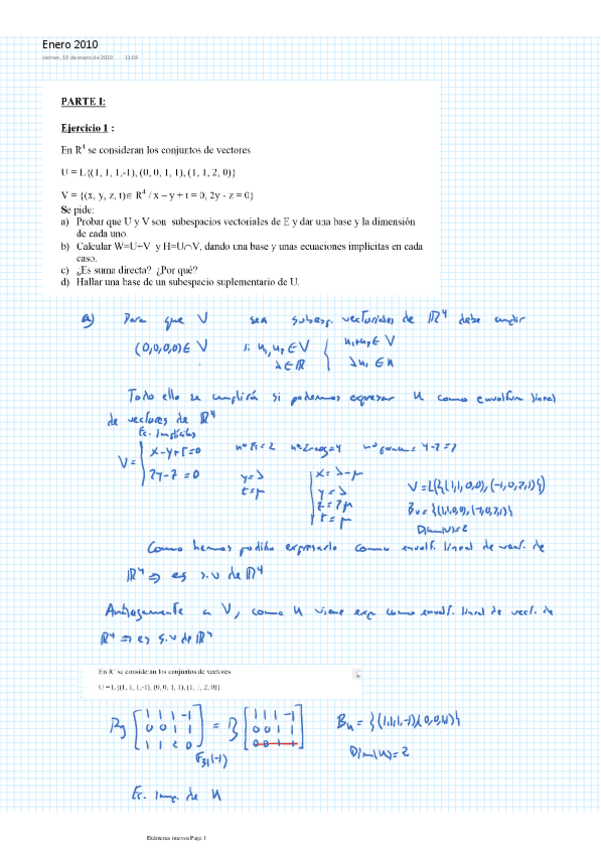 Enero 2010
PARTE I:
Ejercicio 1 :
En R⁴ se consideran los conjuntos de vectores
U = L{(1, 1, 1,-1), (0, 0, 1, 1), (1, 1, 2, 0)}
V = {(x, y, z, t)∈ R⁴ / x – y + t = 0, 2y - z = 0}
Se pide:
a) Probar que U y V son subespacios vectoriales de E y dar una base y la dimensión
de cada uno.
b) Calcular W=U+V y H=U∩V, dando una base y unas ecuaciones implícitas en cada
caso.
c) ¿Es suma directa? ¿Por qué?
d) Hallar una base de un subespacio suplementario de U.
a) Para que V sea subesp. vectoriales de ℝ⁴ debe cumplir
(0,0,0,0)∈ V si u₁,u₂ ∈ V
λ∈ℝ
Todo ello se cumplirá si podemos expresar U como envoltura lineal
de vectores de ℝ⁴
Ec. Implícitas
V= x-y+t=0
2y-z=0
y=λ
t=μ
x=λ-μ
y=λ
z=2μ
t=μ
V=L({(1,1,0,0),(-1,0,2,1)})
Dim(V)=2
Como hemos podido expresarlo como envolt. lineal de vect. de
ℝ⁴ ⇒ es s.v de ℝ⁴
Análogamente a V, como U viene exp como envolt. lineal de vect. de
ℝ⁴ ⇒ es s.v de ℝ⁴
En R⁴ se consideran los conjuntos de vectores
U = L{(1, 1, 1,-1), (0, 0, 1, 1), (1, 1, 2, 0)}
1 1 1 -1 1 1 1 -1
0 0 1 1 = 0 0 1 1
1 1 2 0 0 0 1 1
F₃₁(-1)
Dim(U)=2
Ec. Imp. de U
Exámenes nuevos Page 1